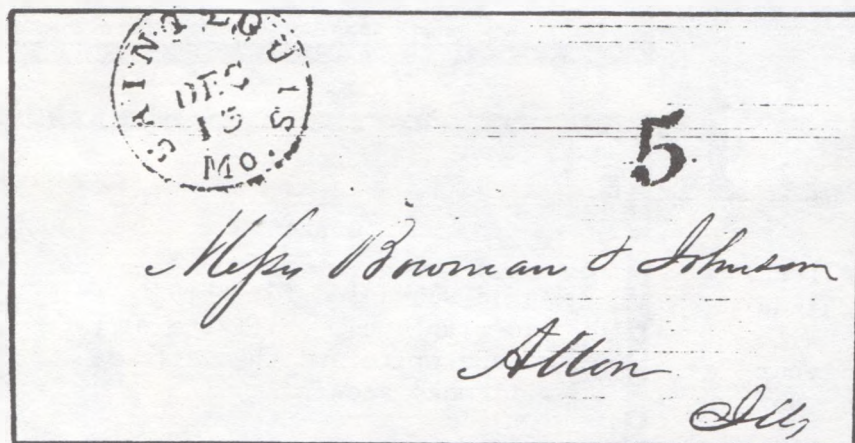 SAINT LOUIS
DEC
Mo.
5
Messrs Bowman & Johnson
Alton
Ills